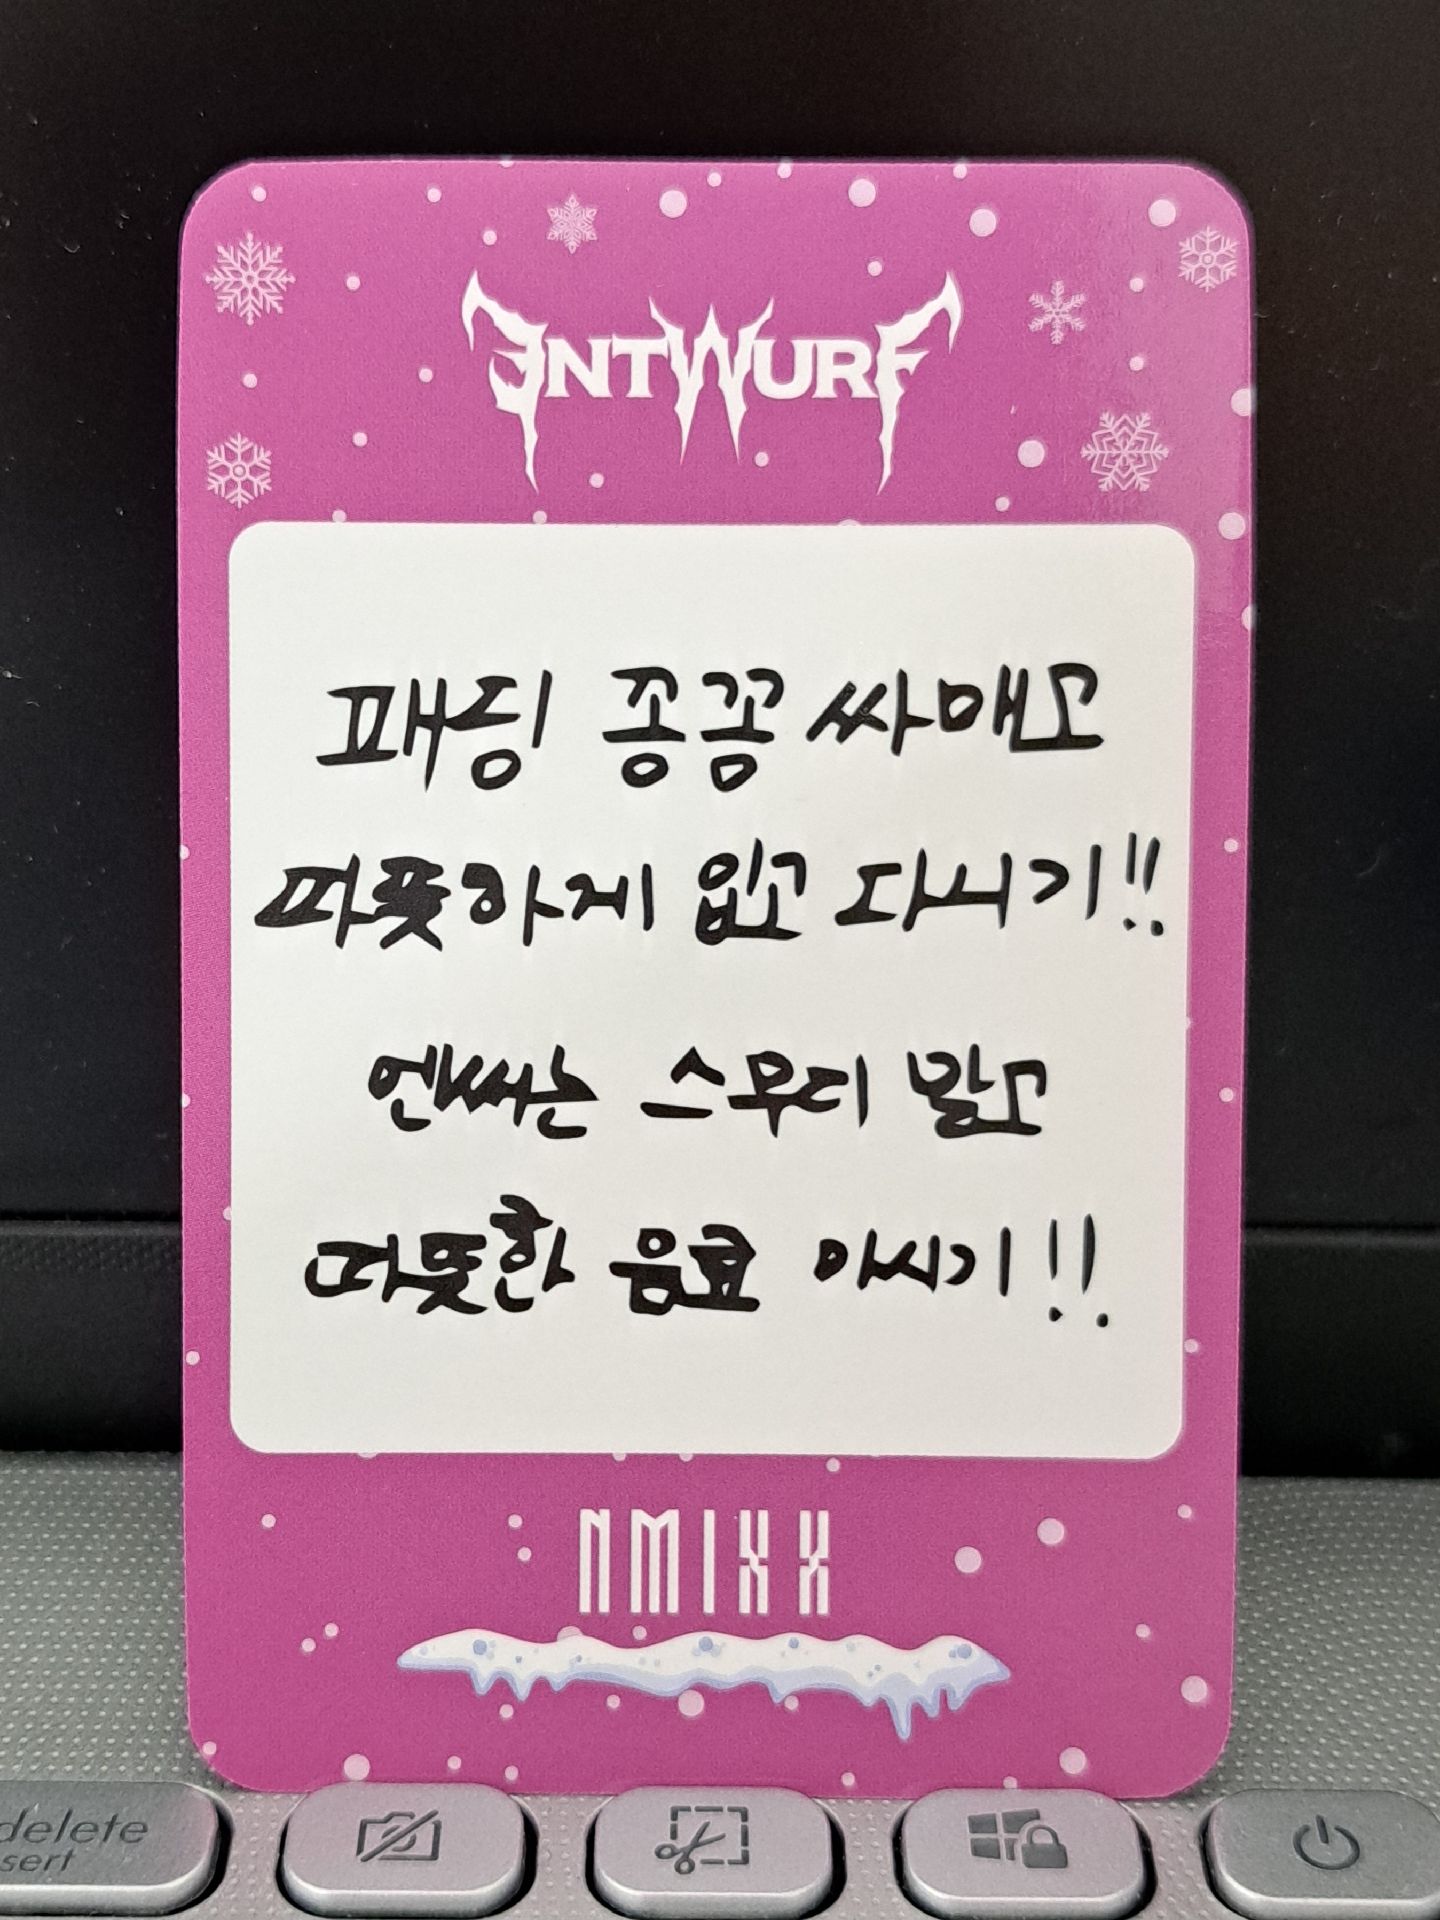 ENTWURF
패딩 꽁꽁 싸매고
따뜻하게 입고 다니기!!
엔써는 스무디 말고
따뜻한 음료 마시기!!
NMIXX
delete
sert